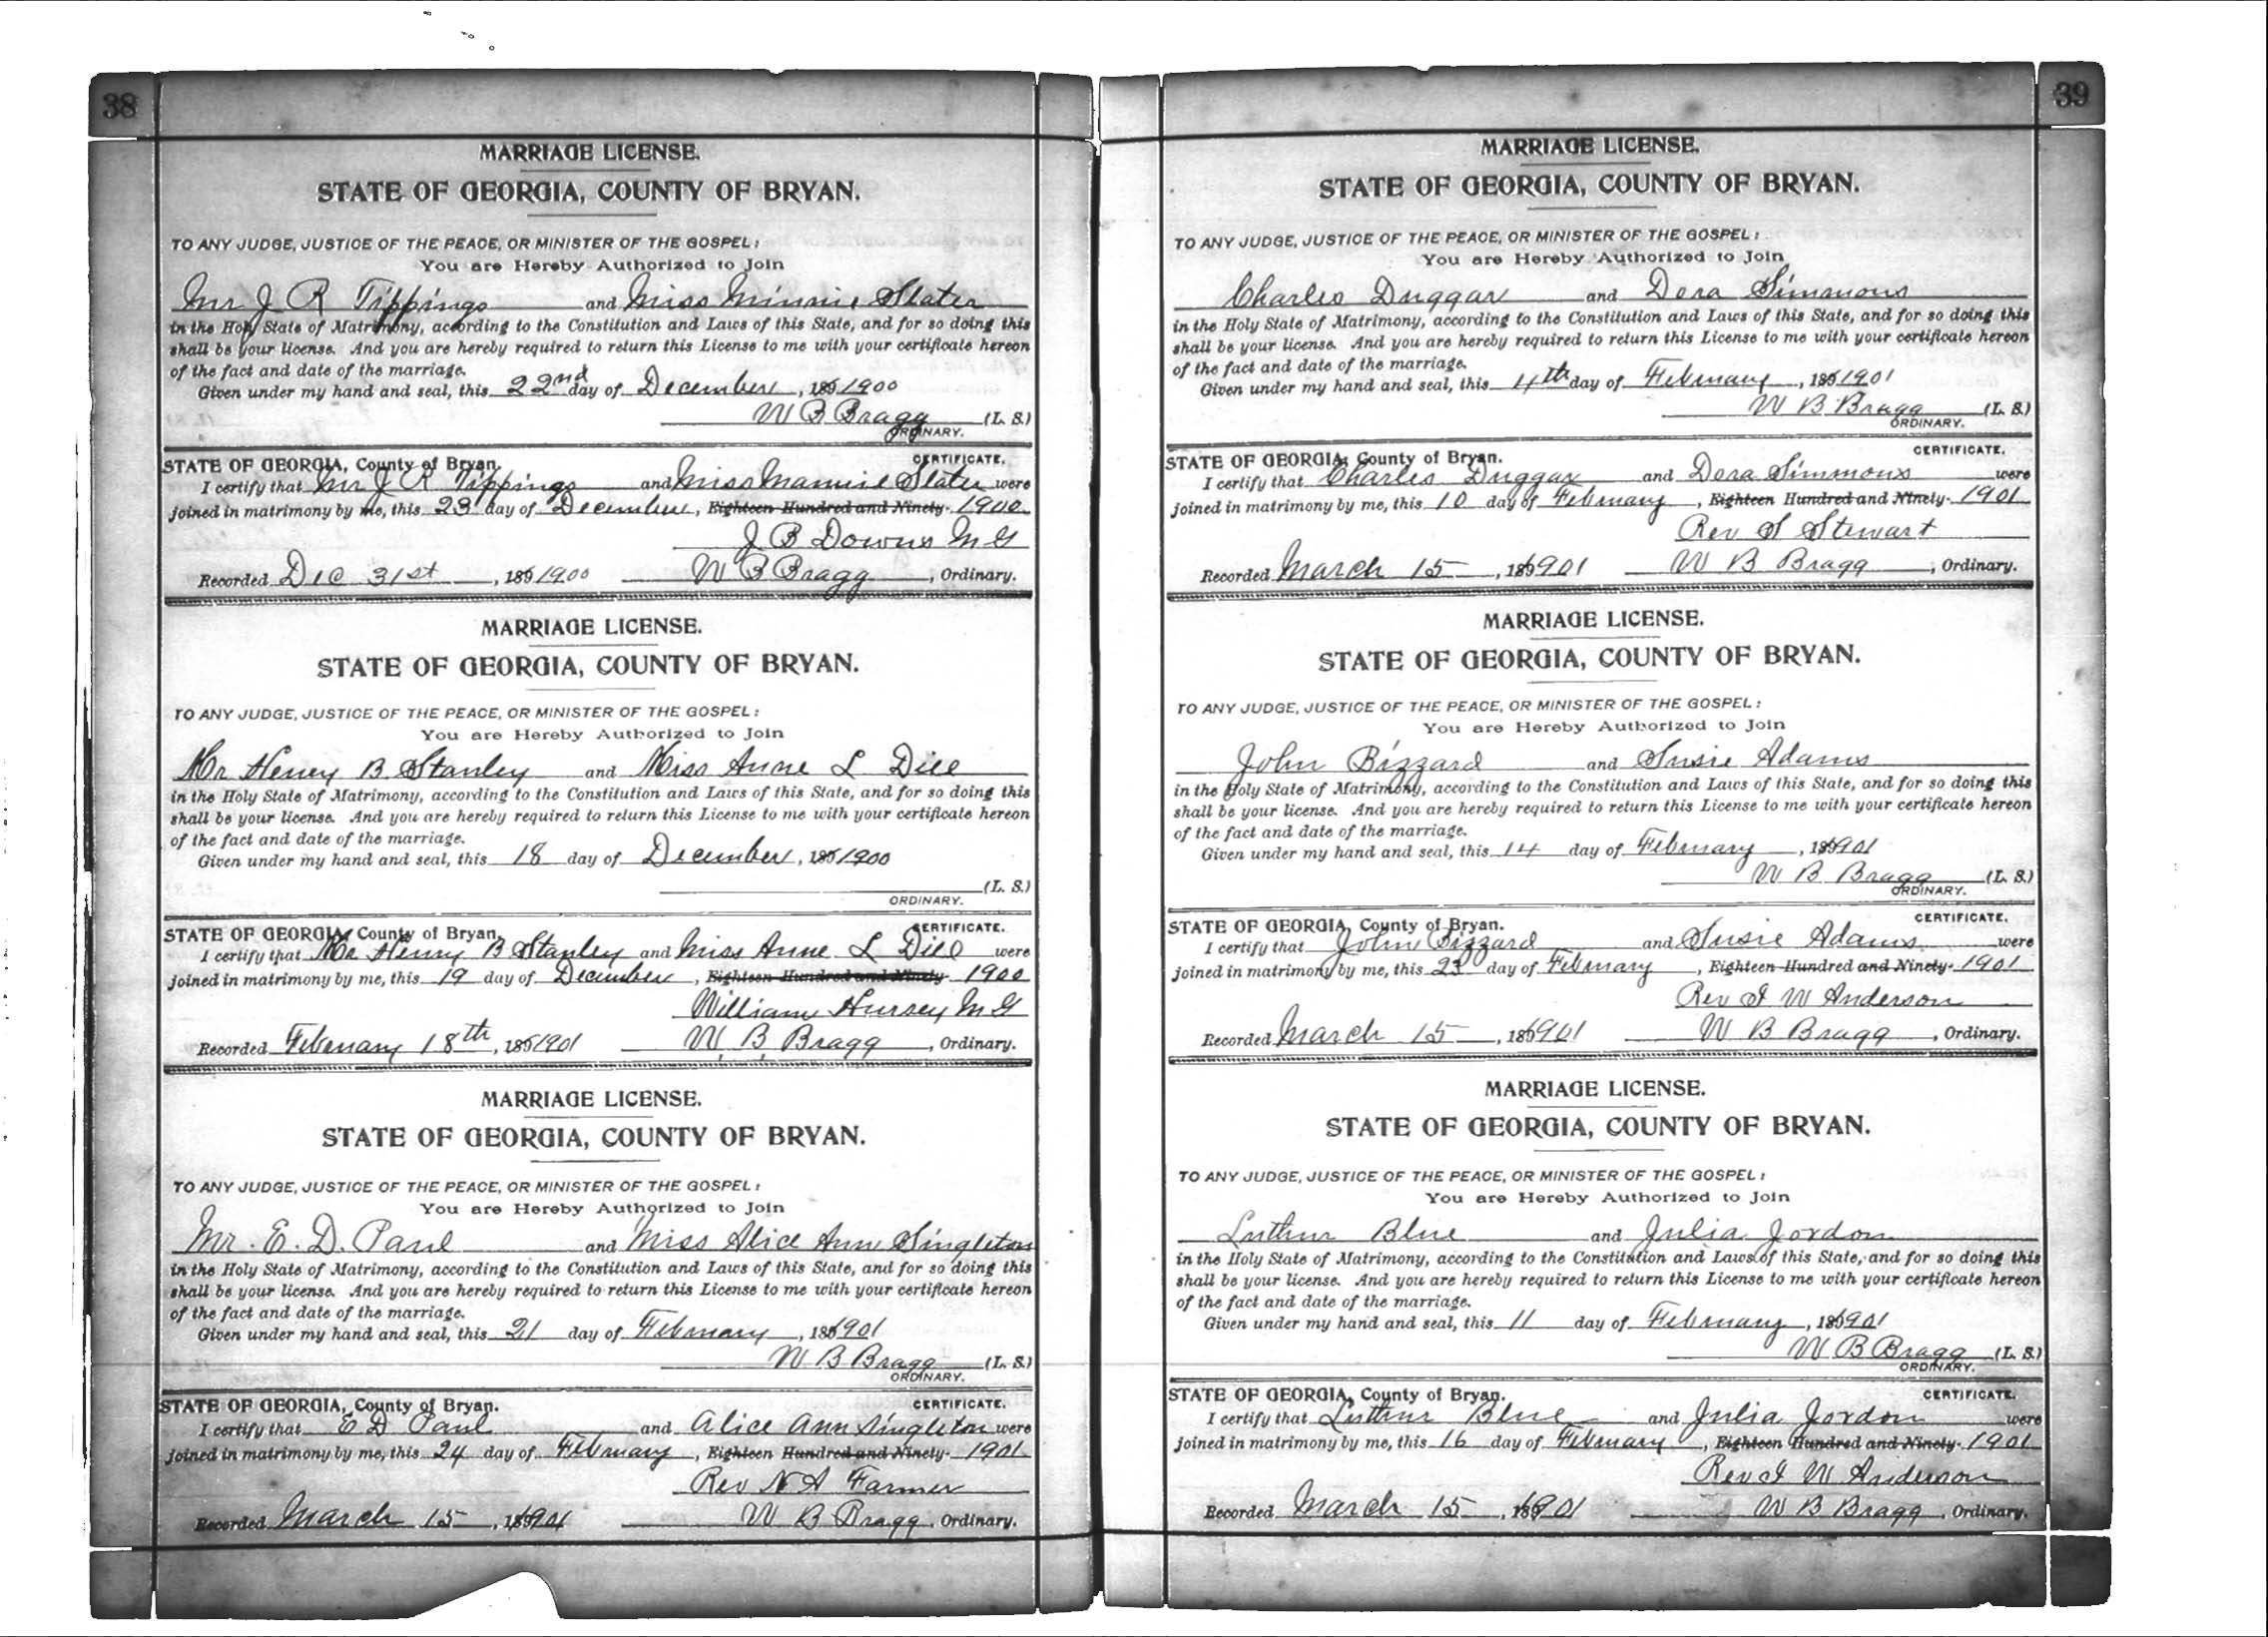 38
MARRIAGE LICENSE.
STATE OF GEORGIA, COUNTY OF BRYAN.
TO ANY JUDGE, JUSTICE OF THE PEACE, OR MINISTER OF THE GOSPEL:
You are Hereby Authorized to Join
Mr J R Tippings and Miss Minnie Slater
in the Holy State of Matrimony, according to the Constitution and Laws of this State, and for so doing this
shall be your license. And you are hereby required to return this License to me with your certificate hereon
of the fact and date of the marriage.
Given under my hand and seal, this 22nd day of December, 1900
W B Bragg (L. S.)
ORDINARY.
CERTIFICATE.
STATE OF GEORGIA, County of Bryan.
I certify that Mr J R Tippings and Miss Mamie Slater were
joined in matrimony by me, this 23 day of December, Eighteen Hundred and Ninety- 1900
J B Downs M G
Recorded Dec 31st, 1900 W B Bragg, Ordinary.
MARRIAGE LICENSE.
STATE OF GEORGIA, COUNTY OF BRYAN.
TO ANY JUDGE, JUSTICE OF THE PEACE, OR MINISTER OF THE GOSPEL:
You are Hereby Authorized to Join
Mr Henry B Stanley and Miss Anne L Dill
in the Holy State of Matrimony, according to the Constitution and Laws of this State, and for so doing this
shall be your license. And you are hereby required to return this License to me with your certificate hereon
of the fact and date of the marriage.
Given under my hand and seal, this 18 day of December, 1900
(L. S.)
ORDINARY.
CERTIFICATE.
STATE OF GEORGIA, County of Bryan.
I certify that Mr Henry B Stanley and Miss Anne L Dill were
joined in matrimony by me, this 19 day of December, Eighteen Hundred and Ninety- 1900
William Hursey M G
Recorded February 18th, 1901 W. B. Bragg, Ordinary.
MARRIAGE LICENSE.
STATE OF GEORGIA, COUNTY OF BRYAN.
TO ANY JUDGE, JUSTICE OF THE PEACE, OR MINISTER OF THE GOSPEL:
You are Hereby Authorized to Join
Mr. E. D. Paul and Miss Alice Ann Singleton
in the Holy State of Matrimony, according to the Constitution and Laws of this State, and for so doing this
shall be your license. And you are hereby required to return this License to me with your certificate hereon
of the fact and date of the marriage.
Given under my hand and seal, this 21 day of February, 1901
W B Bragg (L. S.)
ORDINARY.
CERTIFICATE.
STATE OF GEORGIA, County of Bryan.
I certify that E D Paul and Alice Ann Singleton were
joined in matrimony by me, this 24 day of February, Eighteen Hundred and Ninety- 1901
Rev N A Farmer
Recorded March 15, 1901 W B Bragg, Ordinary.
39
MARRIAGE LICENSE.
STATE OF GEORGIA, COUNTY OF BRYAN.
TO ANY JUDGE, JUSTICE OF THE PEACE, OR MINISTER OF THE GOSPEL:
You are Hereby Authorized to Join
Charles Duggar and Dora Simmons
in the Holy State of Matrimony, according to the Constitution and Laws of this State, and for so doing this
shall be your license. And you are hereby required to return this License to me with your certificate hereon
of the fact and date of the marriage.
Given under my hand and seal, this 4th day of February, 1901
W B Bragg (L. S.)
ORDINARY.
CERTIFICATE.
STATE OF GEORGIA, County of Bryan.
I certify that Charles Duggar and Dora Simmons were
joined in matrimony by me, this 10 day of February, Eighteen Hundred and Ninety- 1901
Rev S Stewart
Recorded March 15, 1901 W B Bragg, Ordinary.
MARRIAGE LICENSE.
STATE OF GEORGIA, COUNTY OF BRYAN.
TO ANY JUDGE, JUSTICE OF THE PEACE, OR MINISTER OF THE GOSPEL:
You are Hereby Authorized to Join
John Bizzard and Susie Adams
in the Holy State of Matrimony, according to the Constitution and Laws of this State, and for so doing this
shall be your license. And you are hereby required to return this License to me with your certificate hereon
of the fact and date of the marriage.
Given under my hand and seal, this 14 day of February, 1901
W B Bragg (L. S.)
ORDINARY.
CERTIFICATE.
STATE OF GEORGIA, County of Bryan.
I certify that John Bizzard and Susie Adams were
joined in matrimony by me, this 23 day of February, Eighteen Hundred and Ninety- 1901
Rev I W Anderson
Recorded March 15, 1901 W B Bragg, Ordinary.
MARRIAGE LICENSE.
STATE OF GEORGIA, COUNTY OF BRYAN.
TO ANY JUDGE, JUSTICE OF THE PEACE, OR MINISTER OF THE GOSPEL:
You are Hereby Authorized to Join
Luthur Blue and Julia Jordon
in the Holy State of Matrimony, according to the Constitution and Laws of this State, and for so doing this
shall be your license. And you are hereby required to return this License to me with your certificate hereon
of the fact and date of the marriage.
Given under my hand and seal, this 11 day of February, 1901
W B Bragg (L. S.)
ORDINARY.
CERTIFICATE.
STATE OF GEORGIA, County of Bryan.
I certify that Luthur Blue and Julia Jordon were
joined in matrimony by me, this 16 day of February, Eighteen Hundred and Ninety- 1901
Rev I W Anderson
Recorded March 15, 1901 W B Bragg, Ordinary.